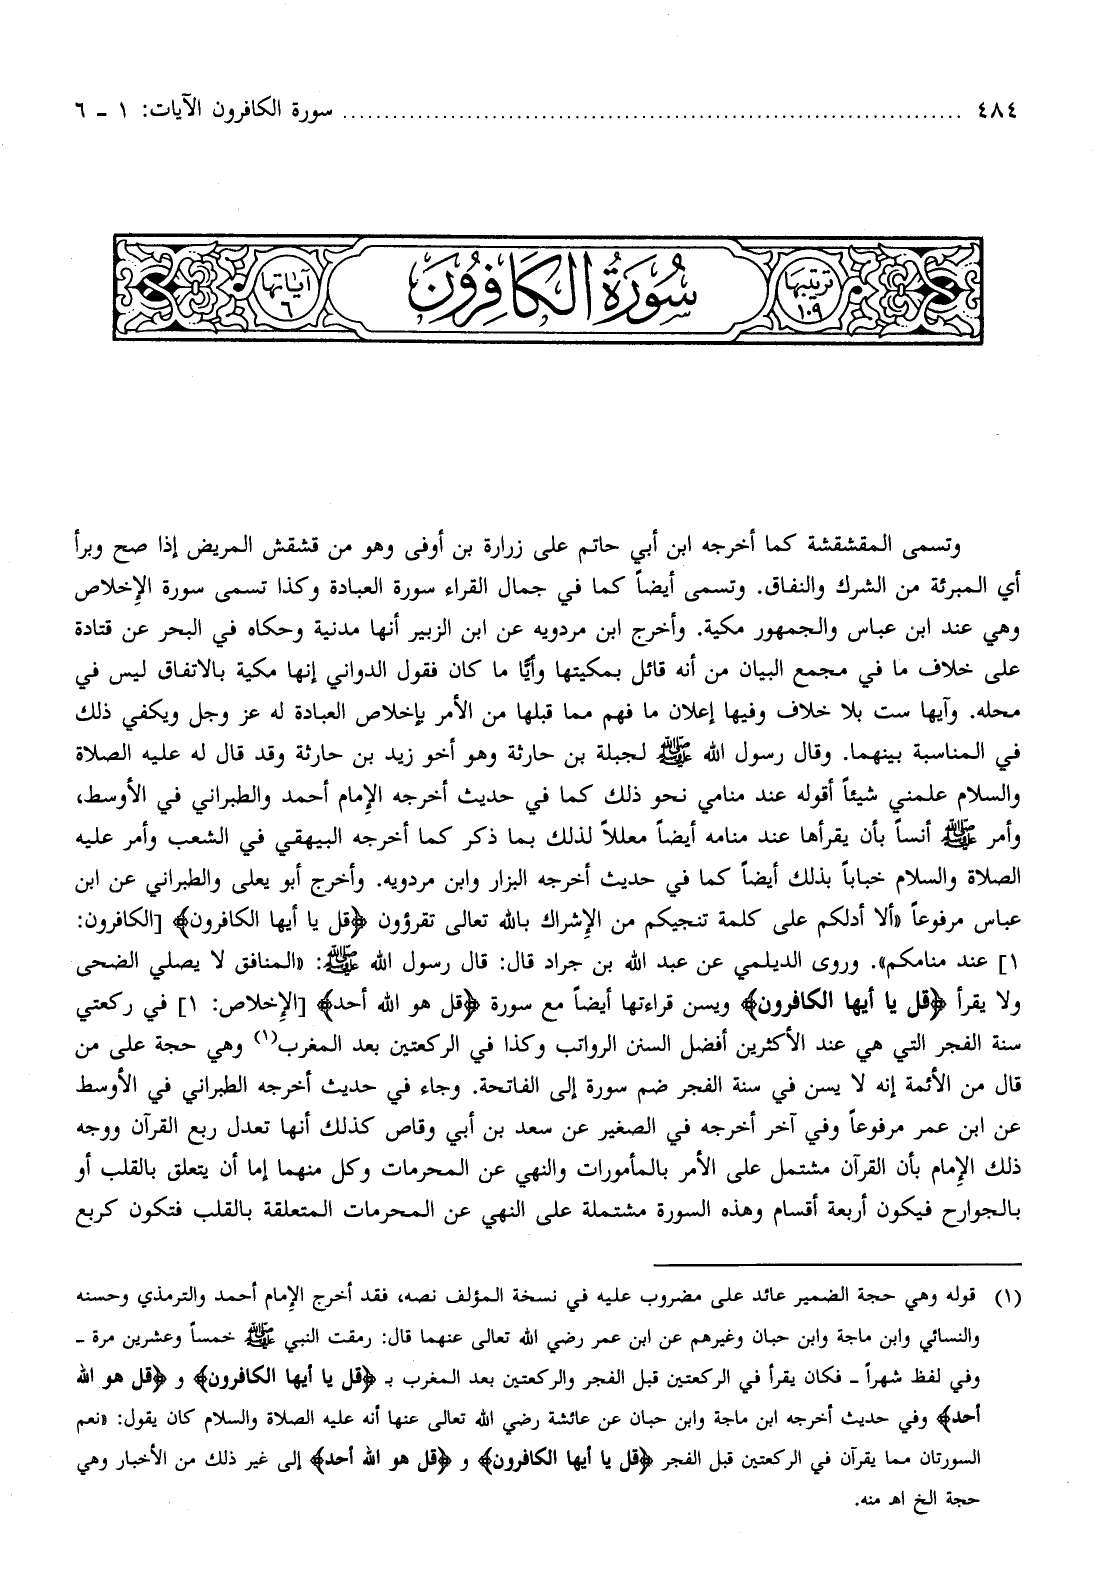 ٤٨٤ ........................................................................ سورة الكافرون الآيات: ١ ـ ٦
ترتيبها ١٠٩
سُورَةُ الكَافِرُونَ
آياتها ٦
وتسمى المقشقشة كما أخرجه ابن أبي حاتم على زرارة بن أوفى وهو من قشقش المريض إذا صح وبرأ
أي المبرئة من الشرك والنفاق. وتسمى أيضاً كما في جمال القراء سورة العبادة وكذا تسمى سورة الإخلاص
وهي عند ابن عباس والجمهور مكية. وأخرج ابن مردويه عن ابن الزبير أنها مدنية وحكاه في البحر عن قتادة
على خلاف ما في مجمع البيان من أنه قائل بمكيتها وأيًّا ما كان فقول الدواني إنها مكية بالاتفاق ليس في
محله. وآيها ست بلا خلاف وفيها إعلان ما فهم مما قبلها من الأمر بإخلاص العبادة له عز وجل ويكفي ذلك
في المناسبة بينهما. وقال رسول الله ﷺ لجبلة بن حارثة وهو أخو زيد بن حارثة وقد قال له عليه الصلاة
والسلام علمني شيئاً أقوله عند منامي نحو ذلك كما في حديث أخرجه الإمام أحمد والطبراني في الأوسط،
وأمر ﷺ أنساً بأن يقرأها عند منامه أيضاً معللاً لذلك بما ذكر كما أخرجه البيهقي في الشعب وأمر عليه
الصلاة والسلام خباباً بذلك أيضاً كما في حديث أخرجه البزار وابن مردويه. وأخرج أبو يعلى والطبراني عن ابن
عباس مرفوعاً «ألا أدلكم على كلمة تنجيكم من الإشراك بالله تعالى تقرؤون ﴿قل يا أيها الكافرون﴾ [الكافرون:
١] عند منامكم». وروى الديلمي عن عبد الله بن جراد قال: قال رسول الله ﷺ: «المنافق لا يصلي الضحى
ولا يقرأ ﴿قل يا أيها الكافرون﴾ ويسن قراءتها أيضاً مع سورة ﴿قل هو الله أحد﴾ [الإخلاص: ١] في ركعتي
سنة الفجر التي هي عند الأكثرين أفضل السنن الرواتب وكذا في الركعتين بعد المغرب(١) وهي حجة على من
قال من الأئمة إنه لا يسن في سنة الفجر ضم سورة إلى الفاتحة. وجاء في حديث أخرجه الطبراني في الأوسط
عن ابن عمر مرفوعاً وفي آخر أخرجه في الصغير عن سعد بن أبي وقاص كذلك أنها تعدل ربع القرآن ووجه
ذلك الإمام بأن القرآن مشتمل على الأمر بالمأمورات والنهي عن المحرمات وكل منهما إما أن يتعلق بالقلب أو
بالجوارح فيكون أربعة أقسام وهذه السورة مشتملة على النهي عن المحرمات المتعلقة بالقلب فتكون كربع
(١) قوله وهي حجة الضمير عائد على مضروب عليه في نسخة المؤلف نصه، فقد أخرج الإمام أحمد والترمذي وحسنه
والنسائي وابن ماجة وابن حبان وغيرهم عن ابن عمر رضي الله تعالى عنهما قال: رمقت النبي ﷺ خمساً وعشرين مرة ـ
وفي لفظ شهراً ـ فكان يقرأ في الركعتين قبل الفجر والركعتين بعد المغرب بـ ﴿قل يا أيها الكافرون﴾ و ﴿قل هو الله
أحد﴾ وفي حديث أخرجه ابن ماجة وابن حبان عن عائشة رضي الله تعالى عنها أنه عليه الصلاة والسلام كان يقول: «نعم
السورتان مما يقرآن في الركعتين قبل الفجر ﴿قل يا أيها الكافرون﴾ و ﴿قل هو الله أحد﴾ إلى غير ذلك من الأخبار وهي
حجة الخ اهـ منه.